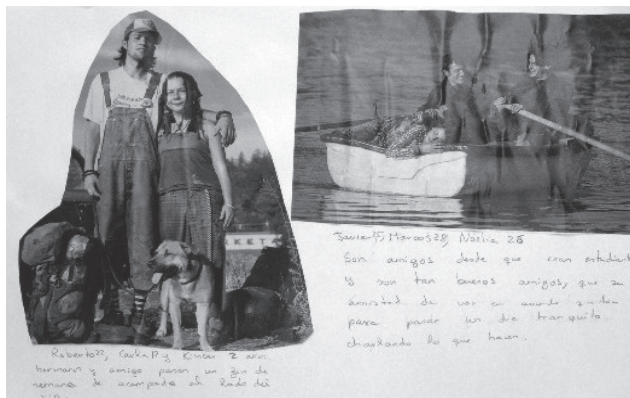 KET
Roberto 22, Carla 19 y Kinder 2 años,
hermanos y amigo pasan un fin de
semana de acampada al lado del
Javier 27, Marcos 28, Noelia 26
Son amigos desde que eran estudiantes
y son tan buenos amigos, que su
amistad de vez en cuando
para pasar un día tranquilo
charlando lo que hacen.